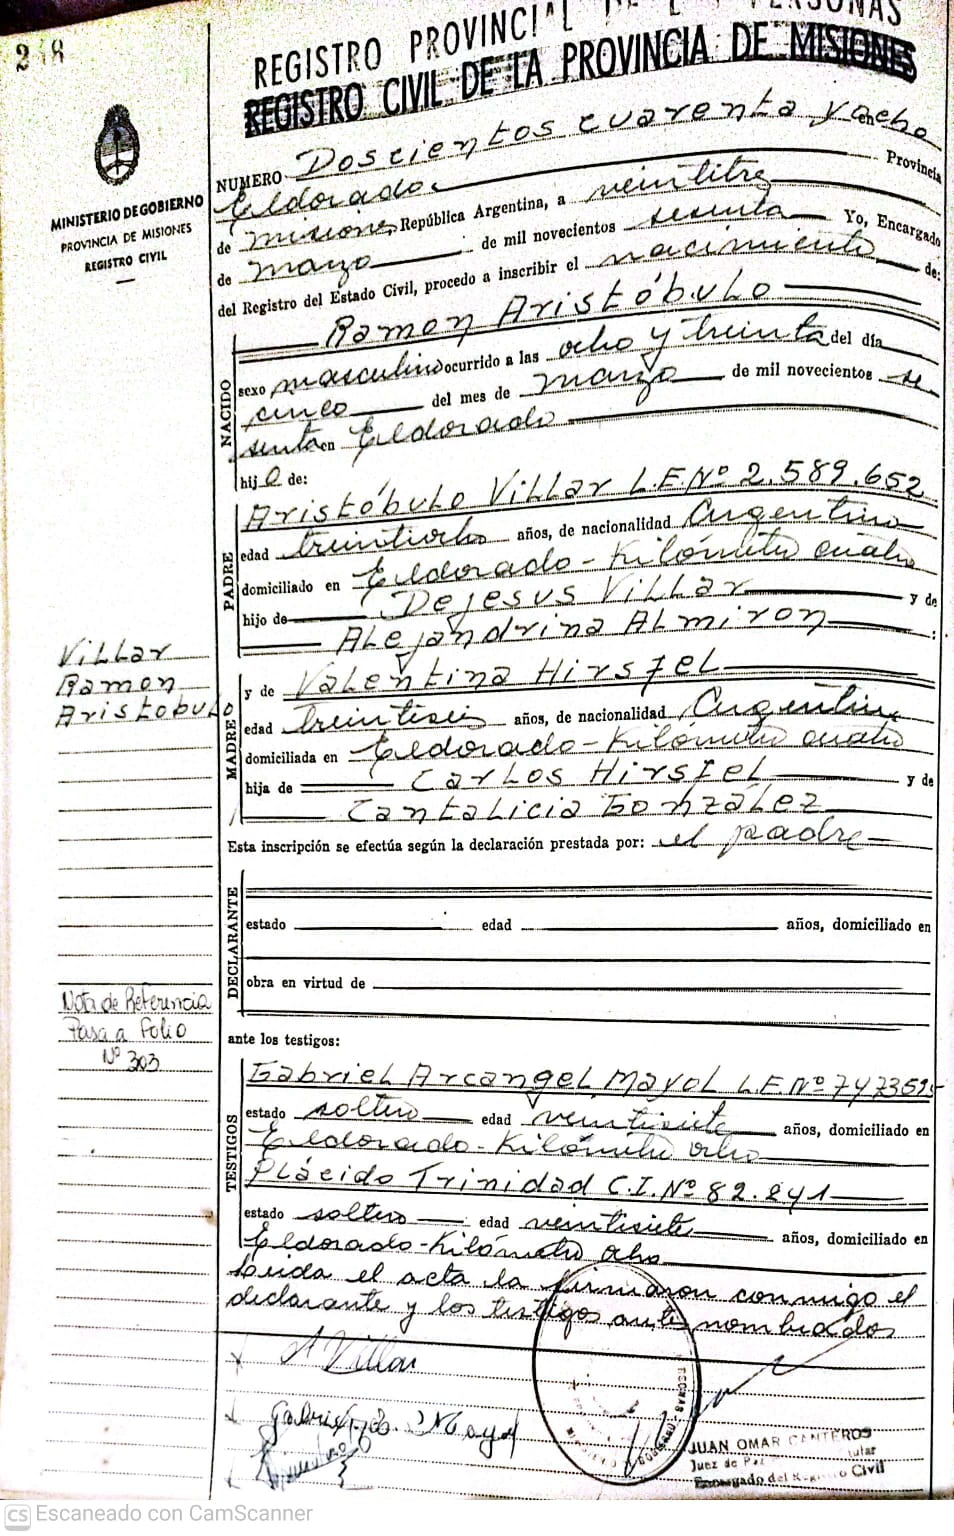 248
REGISTRO PROVINCIAL DE L PERSONAS
REGISTRO CIVIL DE LA PROVINCIA DE MISIONES
MINISTERIO DE GOBIERNO
PROVINCIA DE MISIONES
REGISTRO CIVIL
NUMERO Doscientos cuarenta y ocho en
Eldorado Provincia
de Misiones República Argentina, a veintitres
de marzo de mil novecientos sesenta Yo, Encargado
del Registro del Estado Civil, procedo a inscribir el nacimiento de:
Ramon Aristóbulo
NACIDO
sexo masculino ocurrido a las ocho y treinta del día
cinco del mes de marzo de mil novecientos se
senta en Eldorado
hijo de:
PADRE
Aristóbulo Villar L.E.Nº 2.589.652
edad treintiocho años, de nacionalidad Argentina
domiciliado en Eldorado-Kilómetro cuatro
hijo de Dejesus Villar y de
Alejandrina Almiron :
Villar
Ramon
Aristobulo
MADRE
y de Valentina Hirsfel
edad treintiseis años, de nacionalidad Argentina
domiciliada en Eldorado-Kilómetro cuatro
hija de Carlos Hirsfel y de
Cantalicia González
Esta inscripción se efectúa según la declaración prestada por: el padre
DECLARANTE
estado edad años, domiciliado en
obra en virtud de
Nota de Referencia
Pasa a Folio
Nº 303
ante los testigos:
TESTIGOS
Gabriel Arcangel Mayol L.E.Nº
estado soltero edad veintisiete años, domiciliado en
Eldorado-Kilómetro ocho
Plácido Trinidad C.I.Nº 82.241
estado soltero edad veintisiete años, domiciliado en
Eldorado-Kilómetro ocho
Leida el acta la firmaron conmigo el
declarante y los testigos antes nombrados
A Villar
Gabriel A. Mayol
JUAN OMAR CANTEROS
Juez de Paz
Encargado del Registro Civil
CS Escaneado con CamScanner